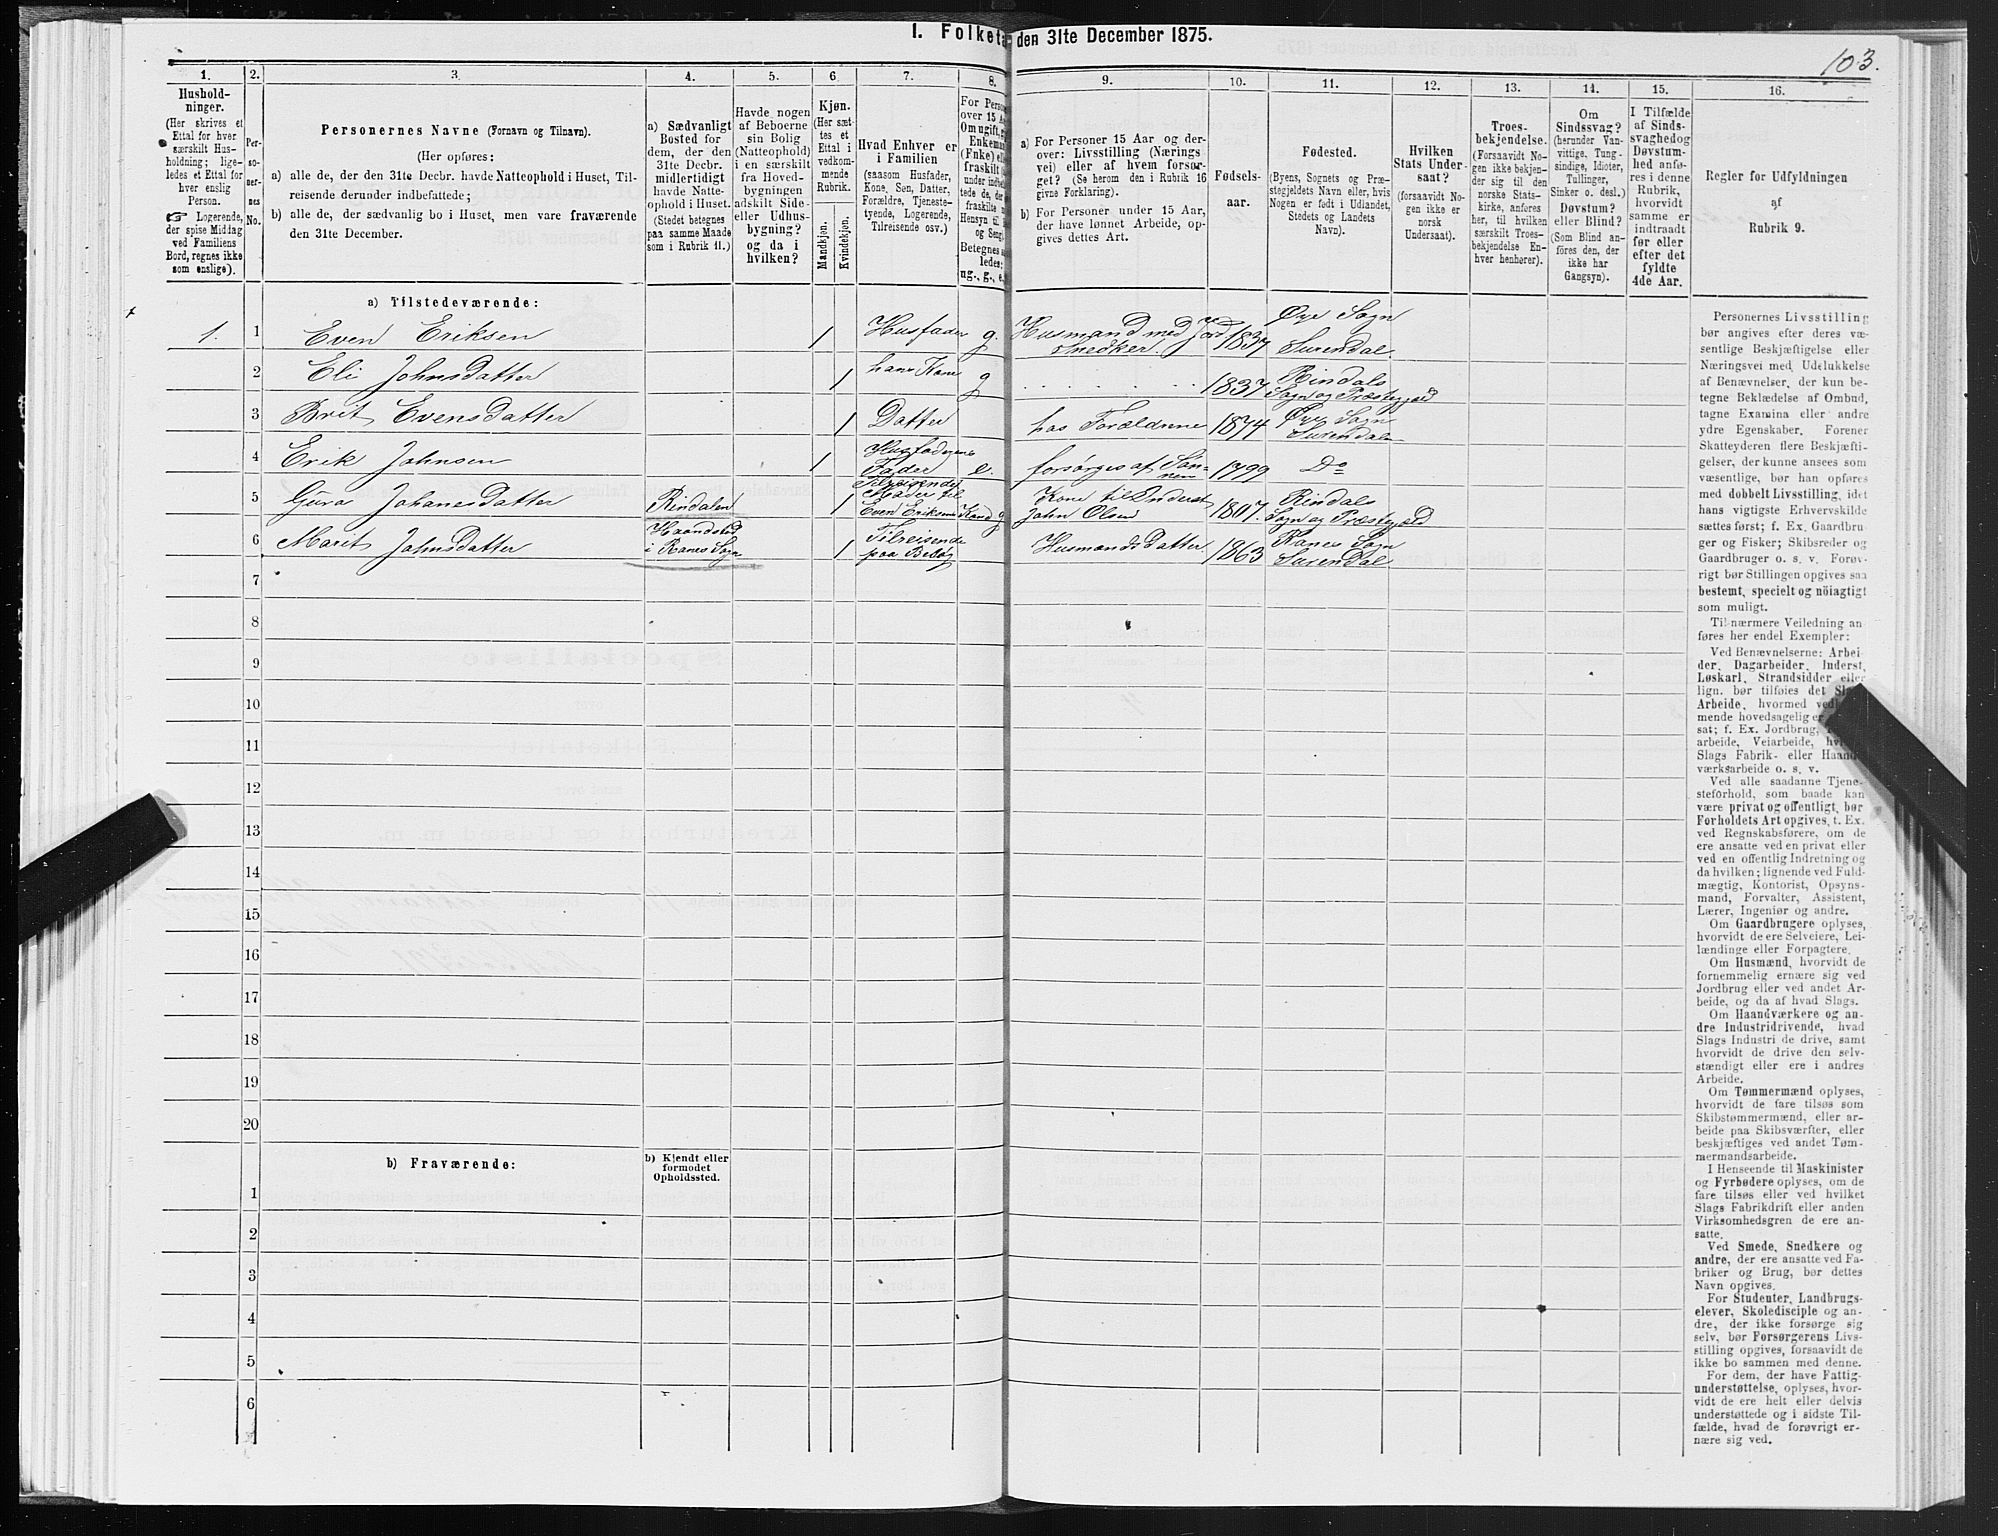 I. Folketal den 31te December 1875.
103.
1.
Hushold-
ninger.
(Her skrives et
Ettal for hver
særskilt Hus-
holdning; lige-
ledes et Ettal for
hver enslig
Person.
☞ Logerende,
der spise Middag
ved Familiens
Bord, regnes ikke
som enslige).
2.
Per-
so-
ner-
nes
No.
3.
Personernes Navne (Fornavn og Tilnavn).
(Her opføres:
a) alle de, der den 31te Decbr. havde Natteophold i Huset, Til-
reisende derunder indbefattede;
b) alle de, der sædvanlig bo i Huset, men vare fraværende
den 31te December.
4.
a) Sædvanligt
Bosted for
dem, der den
31te Decbr.
midlertidigt
havde Natte-
ophold i Huset.
(Stedet betegnes
paa samme Maade
som i Rubrik 11.)
5.
Havde nogen
af Beboerne
sin Bolig
(Natteophold)
i en særskilt
fra Hoved-
bygningen
adskilt Side-
eller Udhus-
bygning?
og da i
hvilken?
6.
Kjøn.
(Her sæt-
tes et
Ettal i
vedkom-
mende
Rubrik.
Mandkjøn.
Kvindekjøn.
7.
Hvad Enhver er
i Familien
(saasom Husfader,
Kone, Søn, Datter,
Forældre, Tjeneste-
tyende, Logerende,
Tilreisende osv.)
8.
For Perso
over 15 Aa
Om ugift, g
Enkema
(Fnke) elle
fraskilt
under indbe
tede de, der
fraskilte m
Hensyn til
og Seng).
Betegnes so
ledes:
ug., g., e.,
9.
a) For Personer 15 Aar og der-
over: Livsstilling (Nærings
vei) eller af hvem forsør-
get? (Se herom den i Rubrik 16
givne Forklaring).
b) For Personer under 15 Aar,
der have lønnet Arbeide, op-
gives dettes Art.
10.
Fødsels-
aar.
11.
Fødested.
(Byens, Sognets og Præ-
stegjeldets Navn eller, hvis
Nogen er født i Udlandet,
Stedets og Landets
Navn).
12.
Hvilken
Stats Under-
saat?
(forsaavidt No-
gen ikke er
norsk
Undersaat).
13.
Troes-
bekjendelse.
(Forsaavidt No-
gen ikke bekjen-
der sig til den
norske Stats-
kirke, anføres
her, til hvilken
særskilt Troes-
bekjendelse En-
hver henhører).
14.
Om
Sindssvag?
(herunder Van-
vittige, Tung-
sindige, Idioter,
Tullinger,
Sinker o. desl.)
Døvstum?
eller Blind?
(Som Blind an-
føres den, der
ikke har
Gangsyn).
15.
I Tilfælde
af Sinds-
svaghed og
Døvstum-
hed anfø-
res i denne
Rubrik,
hvorvidt
samme er
indtraadt
før eller
efter det
fyldte
4de Aar.
16.
Regler for Udfyldningen
af
Rubrik 9.
a) Tilstedeværende:
1. 1 Even Eriksen 1 Husfader g. Husmand med Jord Snedker. 1837 Øye Sogn Surendal
2 Eli Johnsdatter 1 hans Kone g 1837 Rindals Sogn og Præstegjeld
3 Brit Evensdatter 1 Datter hos Forældrene 1874 Øye Sogn Surendalen
4 Erik Johnsen 1 Husfaderens Fader e. forsørges af Sønnen 1799 Do
5 Guro Johanesdatter Rindalen 1 Tilreisende Moder til Even Eriksens Kone g Kone til Inderst John Olsen 1807. Rindals Sogn og Præstegjeld
6 Marit Johnsdatter i Ranes Sogn 1 Tilreisende paa Besøg Husmands Datter 1863 Ranes Sogn Surendal
7
8
9
10
11
12
13
14
15
16
17
18
19
20
b) Fraværende:
b) Kjendt eller
formodet
Opholdssted.
1
2
3
4
5
6
Personernes Livsstilling
bør angives efter deres væ-
sentlige Beskjæftigelse eller
Næringsvei med Udelukkelse
af Benævnelser, der kun be-
tegne Beklædelse af Ombud,
tagne Examina eller andre
ydre Egenskaber. Forener
Skatteyderen flere Beskjæfti-
gelser, der kunne ansees som
væsentlige, bør han opføres
med dobbelt Livsstilling, idet
hans vigtigste Erhvervskilde
sættes først; f. Ex. Gaardbru-
ger og Fisker; Skibsreder og
Gaardbruger o. s. v. Forøv-
rigt bør Stillingen opgives saa
bestemt, specielt og nöiagtigt
som muligt.
Til nærmere Veiledning an-
føres her endel Exempler:
Ved Benævnelserne: Arbei-
der, Dagarbeider, Inderst,
Løskarl, Strandsidder eller
lign. bør tilføies det Slags
Arbeide, hvormed vedkom-
mende hovedsagelig er
sat; f. Ex. Jordbrug,
arbeide, Veiarbeide, hvilket
Slags Fabrik- eller Haand-
værksarbeide o. s. v.
Ved alle saadanne Tjene-
steforhold, som baade kan
være privat og offentligt, bør
Forholdets Art opgives, t. Ex.
ved Regnskabsførere, om de
ere ansatte ved en privat eller
ved en offentlig Indretning og
da hvilken; lignende ved Fuld-
mægtig, Kontorist, Opsyns-
mand, Forvalter, Assistent,
Lærer, Ingeniør og andre.
Om Gaardbrugere oplyses,
hvorvidt de ere Selveiere, Lei-
lændinge eller Forpagtere.
Om Husmænd, hvorvidt de
fornemmelig ernære sig ved
Jordbrug eller ved andet Ar-
beide, og da af hvad Slags.
Om Haandværkere og an-
dre Industridrivende, hvad
Slags Industri de drive, samt
hvorvidt de drive den selv-
stændigt eller ere i andres
Arbeide.
Om Tømmermænd oplyses,
hvorvidt de fare tilsøs som
Skibstømmermænd, eller ar-
beide paa Skibsværfter, eller
beskjæftiges ved andet Tøm-
mermandsarbeide.
I Henseende til Maskinister
og Fyrbødere oplyses, om de
fare tilsøs eller ved hvilket
Slags Fabrikdrift eller anden
Virksomhedsgren de ere an-
satte.
Ved Smede, Snedkere og
andre, der ere ansatte ved Fa-
briker og Brug, bør dettes
Navn opgives.
For Studenter, Landbrugs-
elever, Skoledisciple og an-
dre, der ikke forsørge sig
selv, bør Forsørgerens Livs-
stilling opgives, forsaavidt de
ikke bo sammen med denne.
For dem, der have Fattig-
understøttelse, oplyses, hvor-
vidt de ere helt eller delvis
understøttede og i sidste Til-
fælde, hvad de forøvrigt er-
nære sig ved.